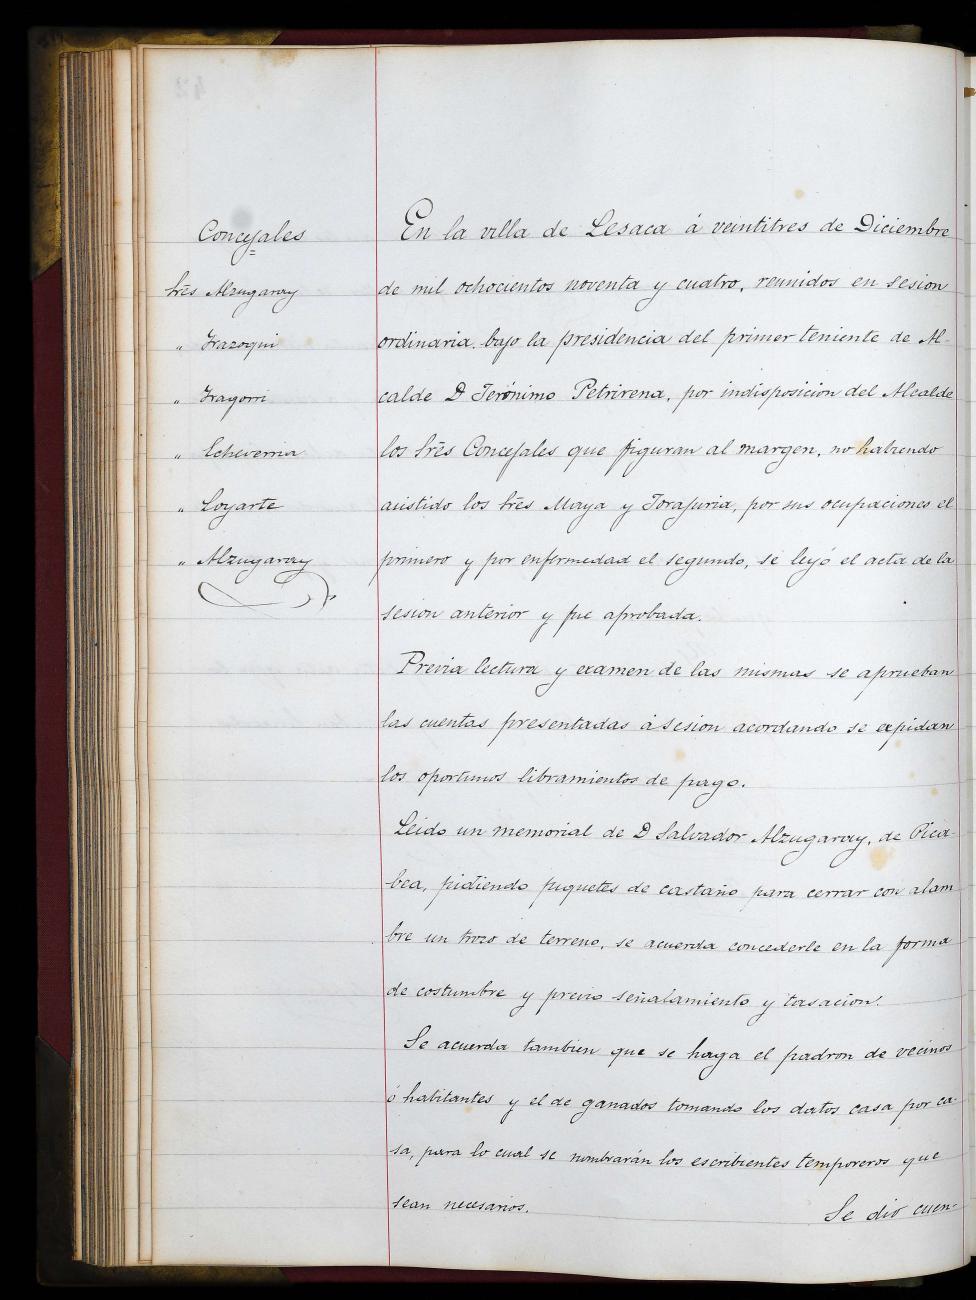 Concejales
Srēs Alzugaray
" Irazoqui
" Iragorri
" Echeverria
" Loyarte
" Alzugaray
En la villa de Lesaca á veintitres de Diciembre
de mil ochocientos noventa y cuatro, reunidos en sesion
ordinaria, bajo la presidencia del primer teniente de Al-
calde D Jerónimo Petrirena, por indisposicion del Alcalde
los Srēs Concejales que figuran al margen, no habiendo
asistido los Srēs Maya y Torajuria, por sus ocupaciones el
primero y por enfermedad el segundo, se leyó el acta de la
sesion anterior y fue aprobada.
Previa lectura y examen de las mismas se aprueban
las cuentas presentadas á sesion acordando se expidan
los oportunos libramientos de pago.
Leido un memorial de D Salvador Alzugaray, de Pica-
bea, pidiendo piquetes de castaño para cerrar con alam
bre un trozo de terreno, se acuerda concederle en la forma
de costumbre y previo señalamiento y tasacion.
Se acuerda tambien que se haga el padron de vecinos
ó habitantes y el de ganados tomando los datos casa por ca-
sa, para lo cual se nombrarán los escribientes temporeros que
sean necesarios. Se dió cuen-